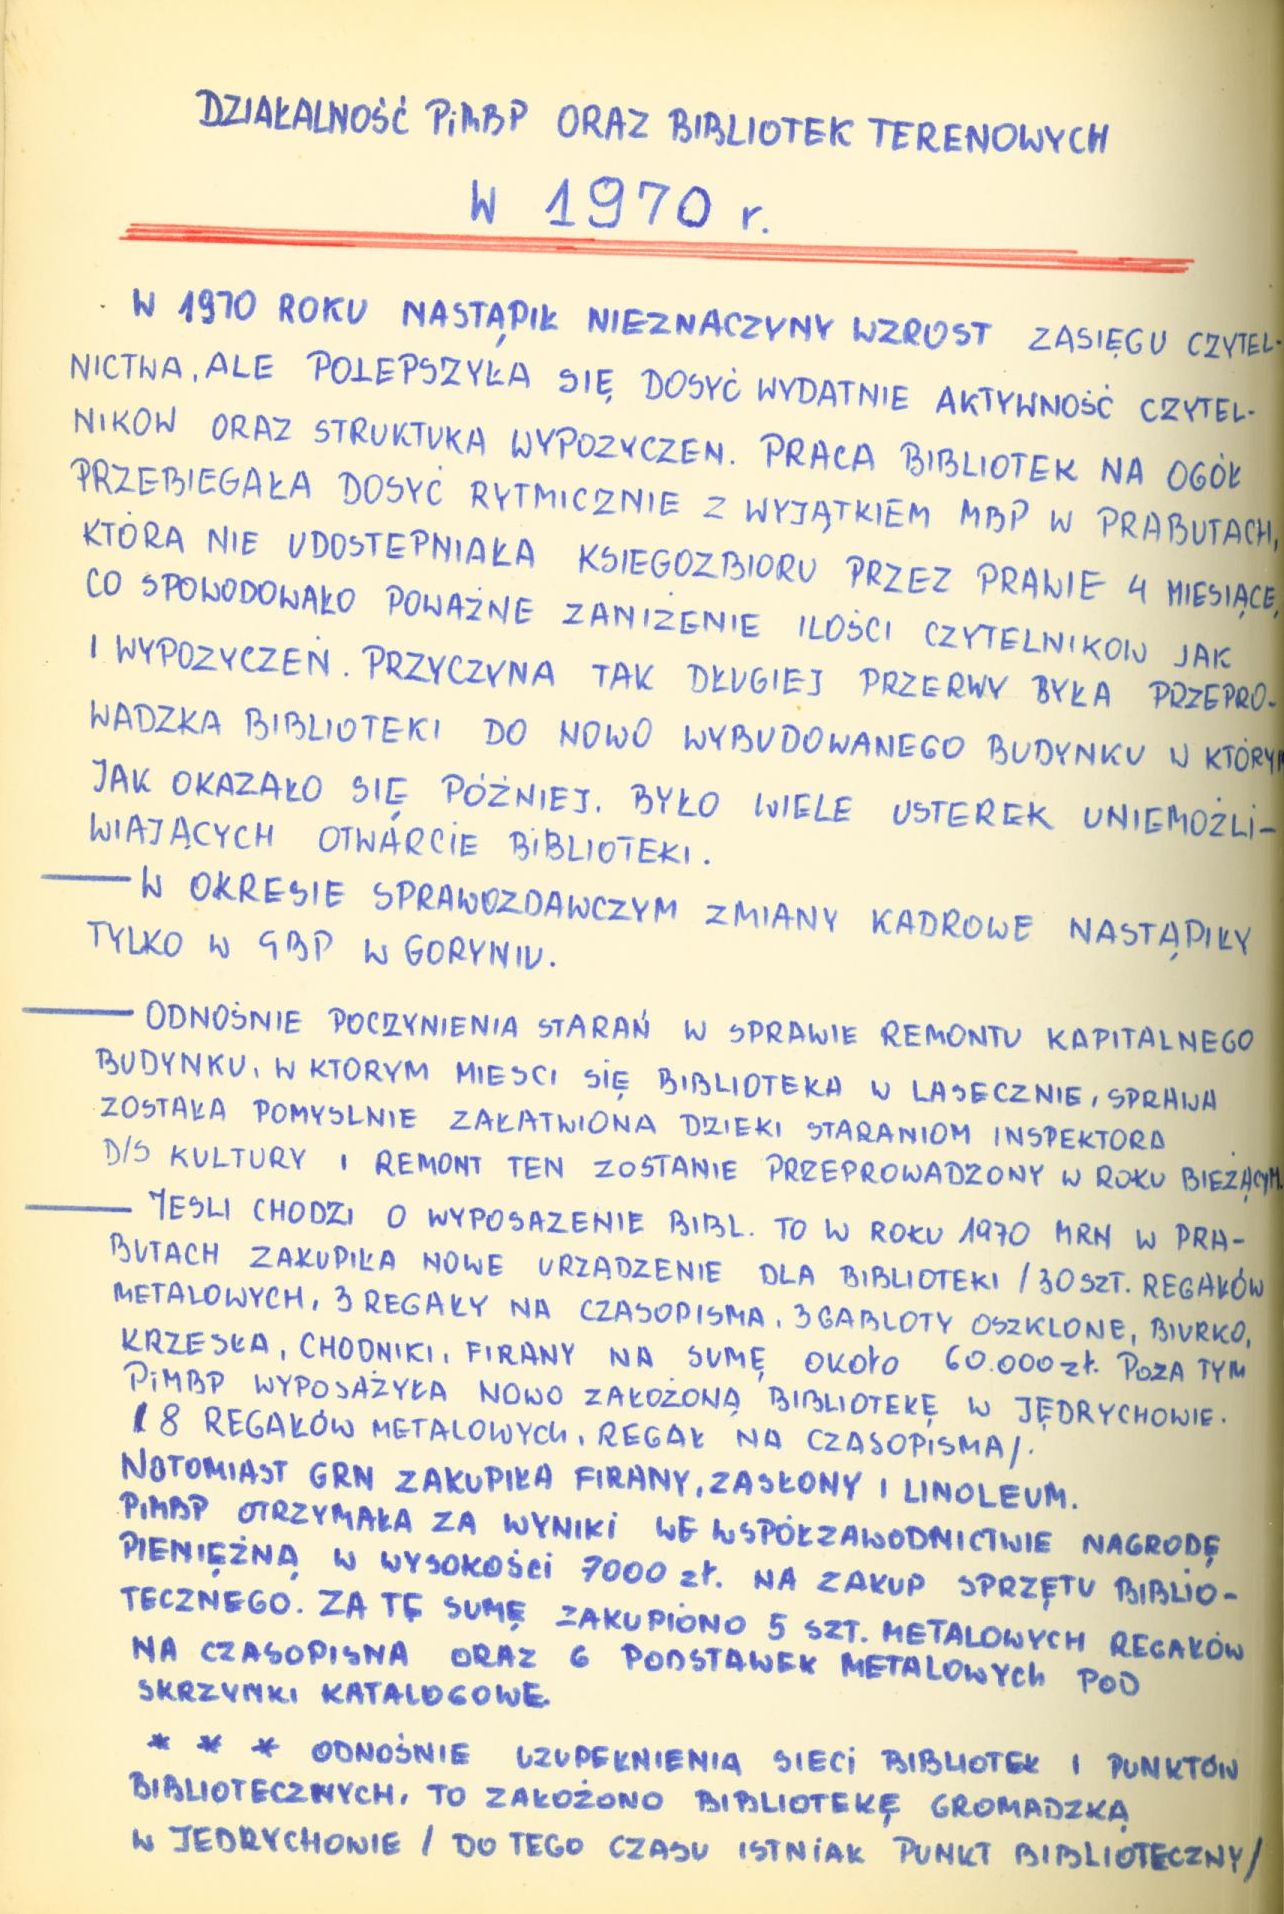 DZIAŁALNOŚĆ PiMBP ORAZ BIBLIOTEK TERENOWYCH
W 1970 r.
W 1970 ROKU NASTĄPIŁ NIEZNACZYNY WZROST ZASIĘGU CZYTEL-
NICTWA, ALE POLEPSZYŁA SIĘ DOSYĆ WYDATNIE AKTYWNOŚĆ CZYTEL-
NIKOW ORAZ STRUKTUKA WYPOZYCZEN. PRACA BIBLIOTEK NA OGÓŁ
PRZEBIEGAŁA DOSYĆ RYTMICZNIE Z WYJĄTKIEM MBP W PRABUTACH,
KTÓRA NIE UDOSTEPNIAŁA KSIEGOZBIORU PRZEZ PRAWIE 4 MIESIĄCE,
CO SPOWODOWAŁO POWAŻNE ZANIŻENIE ILOŚCI CZYTELNIKOW JAK
I WYPOZYCZEŃ. PRZYCZYNA TAK DŁUGIEJ PRZERWY BYŁA PRZEPRO-
WADZKA BIBLIOTEKI DO NOWO WYBUDOWANEGO BUDYNKU W KTÓRYM
JAK OKAZAŁO SIĘ PÓŹNIEJ. BYŁO WIELE USTEREK UNIEMOŻLI-
WIAJĄCYCH OTWARCIE BIBLIOTEKI.
— W OKRESIE SPRAWOZDAWCZYM ZMIANY KADROWE NASTĄPIŁY
TYLKO W GBP W GORYNIU.
— ODNOŚNIE POCZYNIENIA STARAŃ W SPRAWIE REMONTU KAPITALNEGO
BUDYNKU, W KTORYM MIESCI SIĘ BIBLIOTEKA W LASECZNIE, SPRAWA
ZOSTAŁA POMYSLNIE ZAŁATWIONA DZIEKI STARANIOM INSPEKTORA
D/S KULTURY I REMONT TEN ZOSTANIE PRZEPROWADZONY W ROKU BIEŻĄCYM.
— JESLI CHODZI O WYPOSAZENIE BIBL. TO W ROKU 1970 MRN W PRA-
BUTACH ZAKUPIŁA NOWE URZĄDZENIE DLA BIBLIOTEKI / 30 SZT. REGAŁÓW
METALOWYCH, 3 REGAŁY NA CZASOPISMA, 3 GABLOTY OSZKLONE, BIURKO,
KRZESŁA, CHODNIKI, FIRANY NA SUMĘ OKOŁO 60.000 zł. POZA TYM
PiMBP WYPOSAŻYŁA NOWO ZAŁOŻONĄ BIBLIOTEKĘ W JĘDRYCHOWIE.
/ 8 REGAŁÓW METALOWYCH, REGAŁ NA CZASOPISMA/.
NATOMIAST GRN ZAKUPIŁA FIRANY, ZASŁONY I LINOLEUM.
PiMBP OTRZYMAŁA ZA WYNIKI WE WSPÓŁZAWODNICTWIE NAGRODĘ
PIENIĘŻNĄ W WYSOKOŚCI 7000 zł. NA ZAKUP SPRZĘTU BIBLIO-
TECZNEGO. ZA TĘ SUMĘ ZAKUPIONO 5 SZT. METALOWYCH REGAŁÓW
NA CZASOPISMA ORAZ 6 PODSTAWEK METALOWYCH POD
SKRZYNKI KATALOGOWE.
* * * ODNOŚNIE UZUPEŁNIENIA SIECI BIBLIOTEK I PUNKTÓW
BIBLIOTECZNYCH, TO ZAŁOŻONO BIBLIOTEKĘ GROMADZKĄ
W JEDRYCHOWIE / DO TEGO CZASU ISTNIAŁ PUNKT BIBLIOTECZNY/